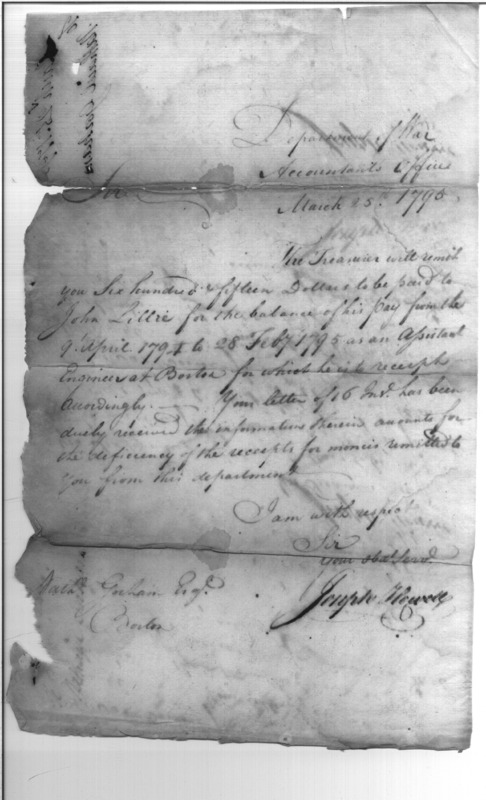 Department of War
Accountant's Office
March 25th. 1795
Sir
The Treasurer will remit
you Six hundred & fifteen Dollars to be paid to
John Lillie for the balance of his pay from the
9. April 1794 to 28 Feby 1795 as an Assistant
Engineer at Boston for which he is to receipt
accordingly. Your letter of 16 Inst. has been
duely received the information therein accounts for
the deficiency of the receipts for monies remitted to
you from this department
I am with respect
Sir
Your Obd. Servt.
Joseph Howell
Nathl. Gorham Esqr.
Boston